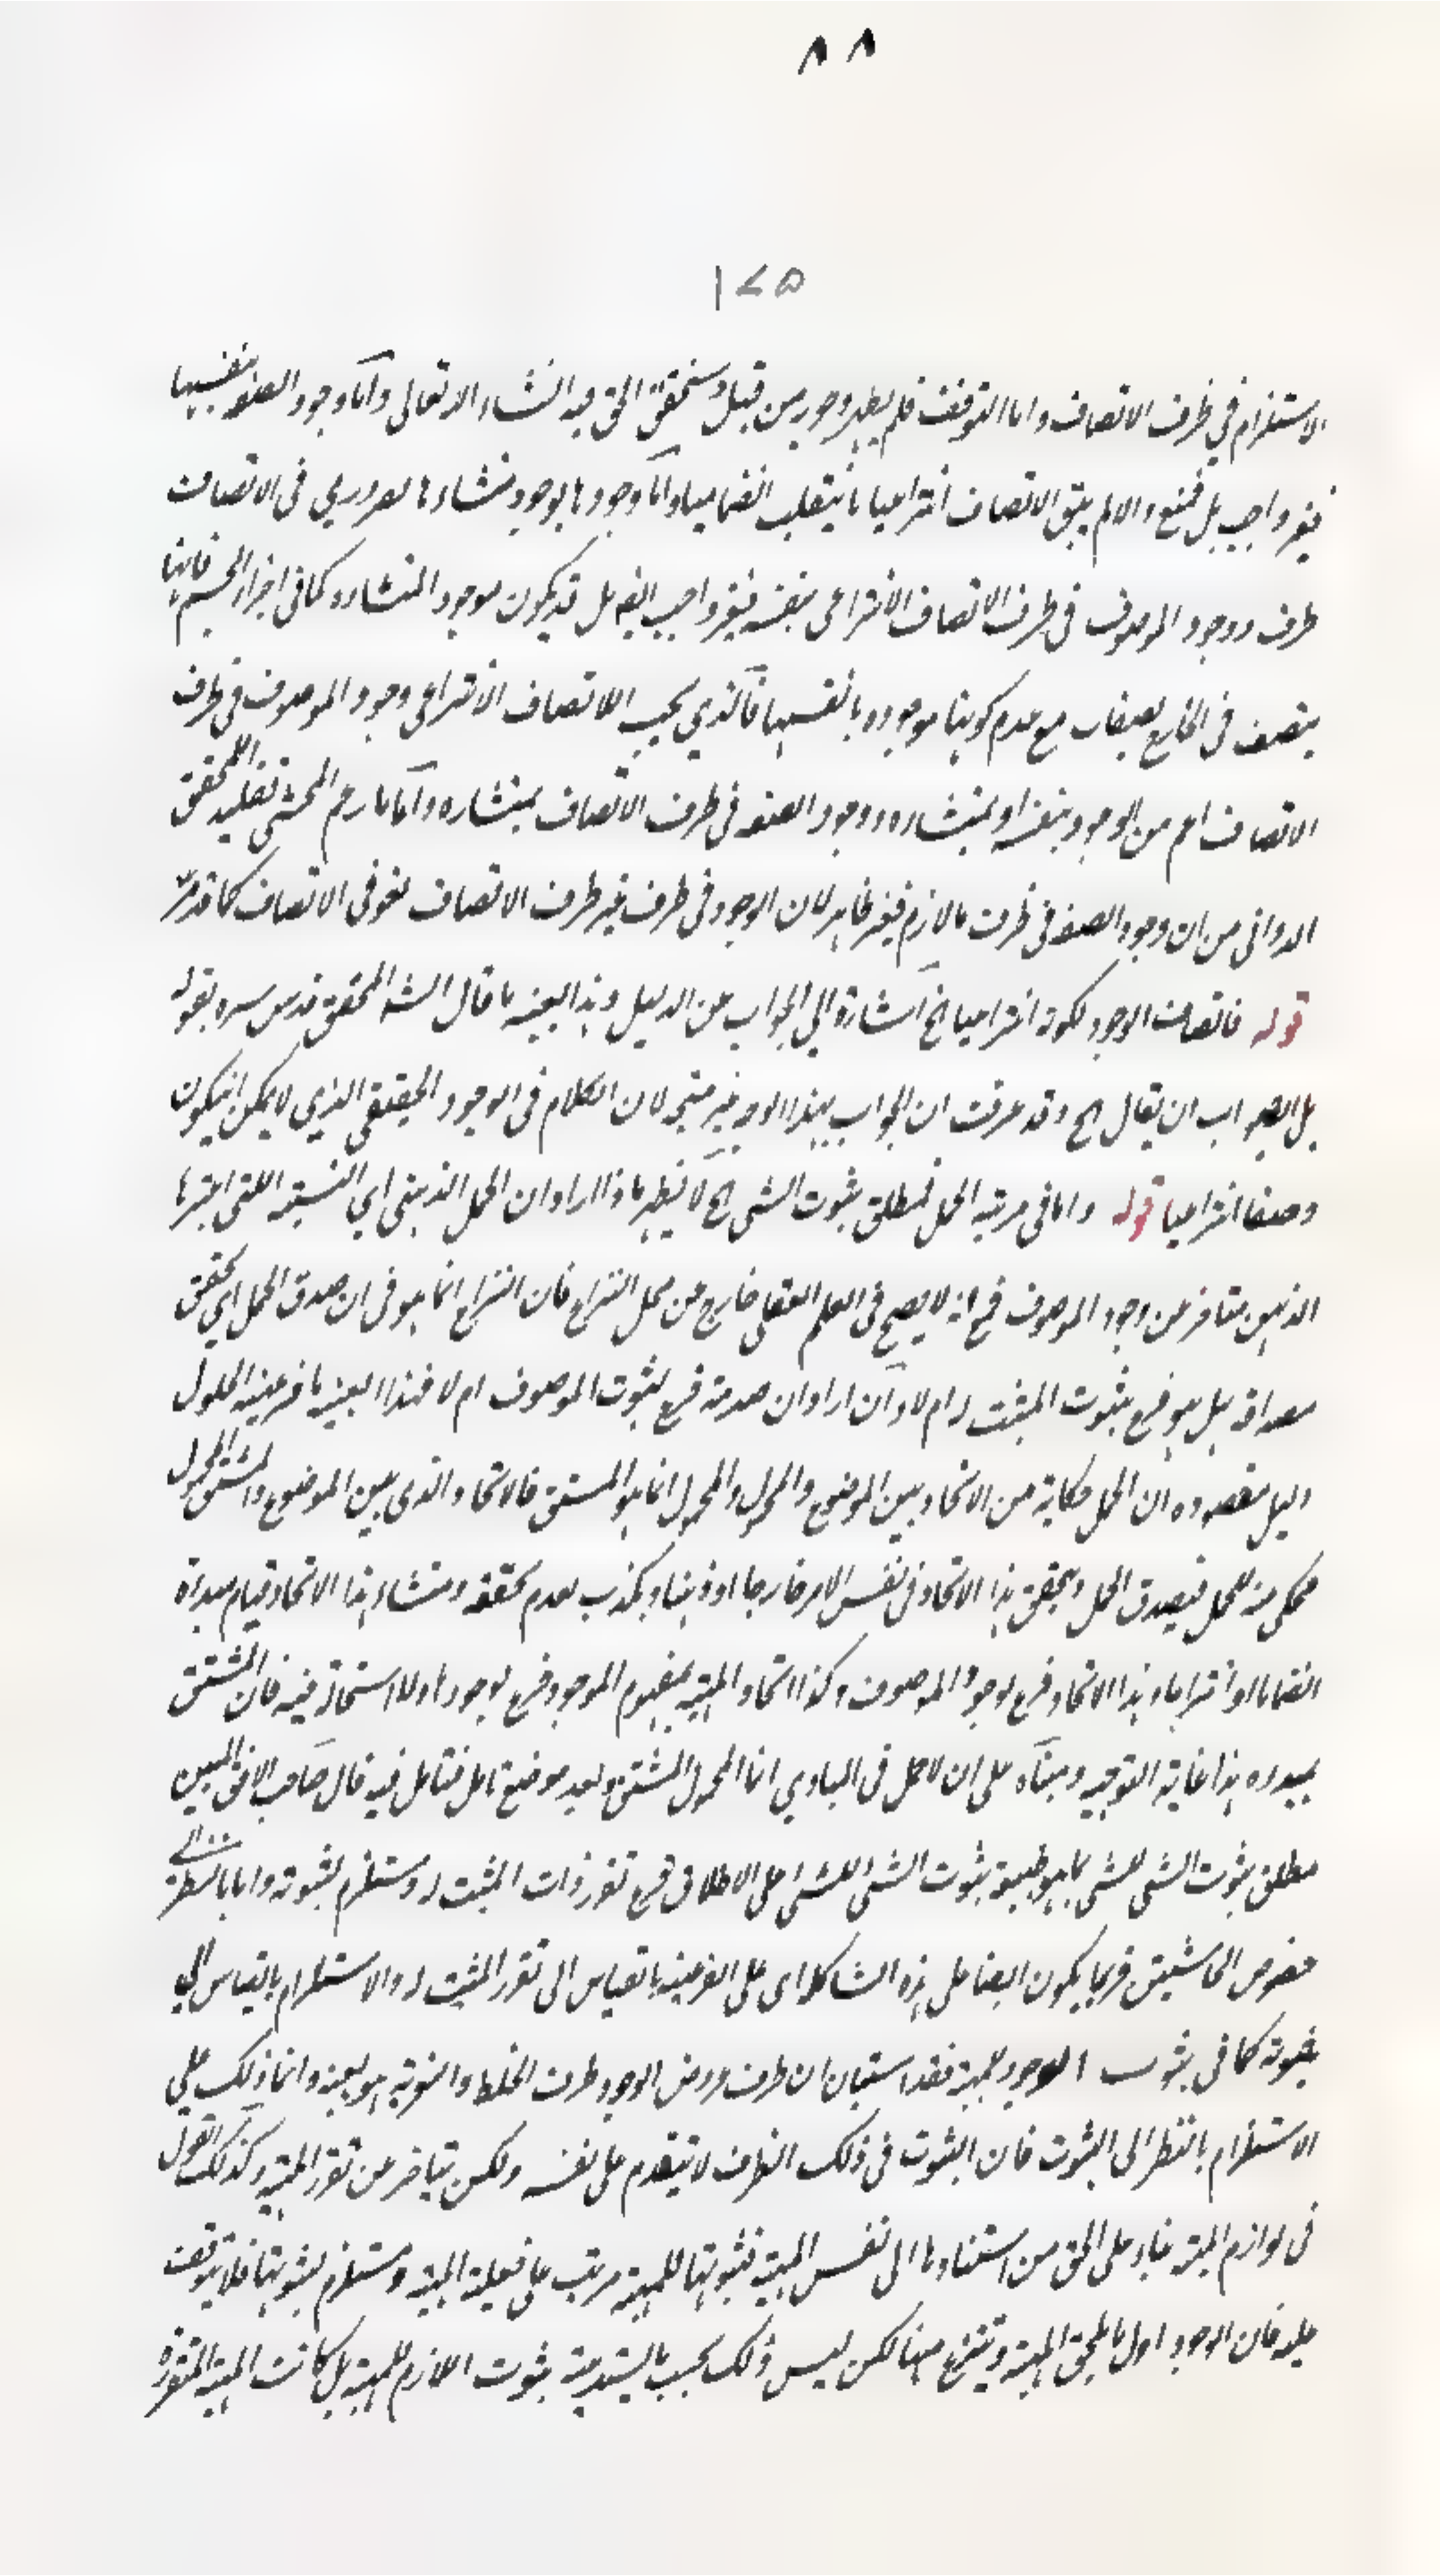 ٨ ٨
١٧٥
الاستلزام في ظرف الاتصاف واما التوقف فلم يظهر وجهه من قبل وسنحقق الحق فيه انشاء الله تعالى واما وجود الصفة بنفسها
فغير واجب بل ممتنع والا لم يبق الاتصاف انتزاعيا بل ينقلب انضماميا واما وجودها بوجود منشاءها فضروري فى الاتصاف
ظرف ووجود الموصوف فى ظرف الاتصاف الانتزاعى بنفسه فغير واجب ايضا بل قد يكون موجودا بمنشاءه كما فى اجزاء الجسم فانها
يتصف فى الخارج بصفات مع عدم كونها موجودة بانفسها فالذي يجب للاتصاف الانتزاعى وجود الموصوف فى ظرف
الاتصاف اعم من الوجود بنفسه او بمنشاءه ووجود الصفة فى ظرف الاتصاف بمنشاءه واما ما زعم المحشى تقليد المحقق
الدوانى من ان وجود الصفة فى ظرف ما لازم فغير ظاهر لان الوجود فى ظرف غير ظرف الاتصاف لغو فى الاتصاف كما قد مر
قوله فاتصاف الوجود لكونه انتزاعيا الخ اشارة الى الجواب عن الدليل وهذا بعينه ما قال الشه المحقق قدس سره بقوله
بل الصواب ان يقال الخ وقد عرفت ان الجواب بهذا الوجه غير متجه لان الكلام فى الوجود الحقيقى الذي لا يمكن ان يكون
وصفا انتزاعيا قوله واما فى مرتبة الحمل فمطلق ثبوت الشى الخ لا يظهر ماذا اراد ان الحمل الذهنى اي النسبة التى اعتبرها
الذهن متاخر عن وجود الموصوف فمع انه لا يصح فى العلم الفعلى خارج عن محل النزاع فان النزاع انما هو فى ان صدق الحمل اي تحقق
مصداقه هل هو فرع ثبوت المثبت له ام لا وان اراد ان صدقه فرع لثبوت الموصوف ام لا فهذا بعينه ما فر عنه الحلول
ولعل مقصوده ان الحمل حكاية عن الاتحاد بين الموضوع والمحمول والمحمول انما هو المشتق فالاتحاد الذى بين الموضوع والمشتق المحمول
محكى عنه للحمل فيصدق الحمل وبتحقق هذا الاتحاد فى نفس الامر خارجا او ذهنا ويكذب بعدم تحققه ومنشاء هذا الاتحاد قيام مبدءه
انضماما او انتزاعا وهذا الاتحاد فرع لوجود الموصوف وكذا اتحاد المهية بمفهوم الموجود فرع لوجودها ولا استحالة فيه فان المشتق
بمبدءه هذا غاية التوجيه ومبناه على ان لا حمل فى المبادي انما المحمول المشتق وبعد موضع تامل فتامل فيه قال صاحب الافق المبين
مطلق ثبوت الشى للشى بما هو طبيعة ثبوت الشئ للشئ على الاطلاق فرع تقرر ذات المثبت له ومستلزم لثبوته واما بالنظر الى
خصوص الحاشيتين فربما يكون ايضا على هذه الشاكلة اى على الفرعية بالقياس الى تقرر المثبت له والاستلزام بالقياس الى
ثبوته كما فى ثبوت الوجود للمهية فقد استبان ان ظرف عروض الوجود ظرف الخلط والتعرية هو بعينه وانما ذلك على
الاستلزام بالنظر الى الثبوت فان الثبوت فى ذلك الظرف لا يتقدم على نفسه ولكن يتاخر عن تقرر المهية وكذلك القول
فى لوازم المهية بناء على الحق من استنادها الى نفس المهية فثبوتها للمهية مرتب على فعلية المهية ومستلزم لثبوتها فلا يتوقف
عليه فان الوجود اول ما يلحق المهية وينتزع منها لكن ليس ذلك بحسب ما يستدعيه ثبوت اللازم للمهية بل كانت المهية المتقررة